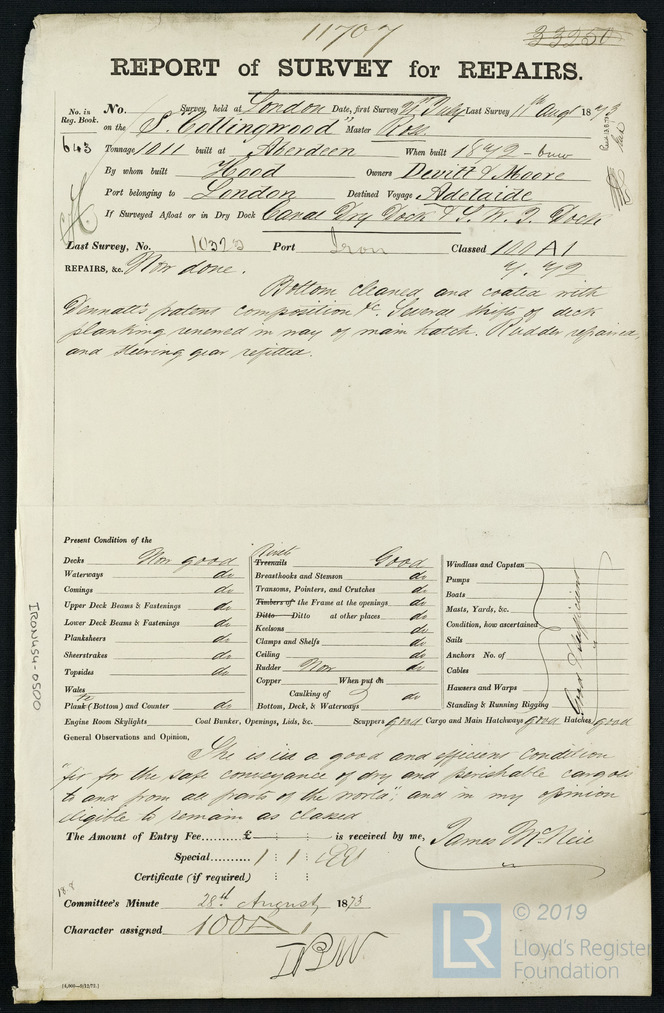 11707
33250
REPORT of SURVEY for REPAIRS.
No. in Reg. Book.
No. Survey, held at London Date, first Survey 21st July Last Survey 11th Augt 1873
on the S. "Collingwood" Master Ross
643 Tonnage 1011 built at Aberdeen When built 1872
By whom built Hood Owners Devitt & Moore
Port belonging to London Destined Voyage Adelaide
If Surveyed Afloat or in Dry Dock Canal Dry Dock & S. W. I. Dock
Last Survey, No. 10373 Port Iron Classed 100 A1
REPAIRS, &c. Now done.
Bottom cleaned and coated with
Dennatt's patent composition &c. Several shifts of deck
planking renewed in way of main hatch. Rudder repaired,
and steering gear refitted.
Present Condition of the
Decks Now good
Waterways do
Comings do
Upper Deck Beams & Fastenings do
Lower Deck Beams & Fastenings do
Planksheers do
Sheerstrakes do
Topsides do
Wales
Plank (Bottom) and Counter do
Rivets
Treenails Good
Breasthooks and Stemson do
Transoms, Pointers, and Crutches do
Timbers of the Frame at the openings do
Ditto Ditto at other places do
Keelsons do
Clamps and Shelfs do
Ceiling do
Rudder Now do
Copper When put on
Caulking of do
Bottom, Deck, & Waterways
Windlass and Capstan
Pumps
Boats
Masts, Yards, &c.
Condition, how ascertained
Sails
Anchors No. of
Cables
Hawsers and Warps
Standing & Running Rigging
Good & Sufficient
Engine Room Skylights Coal Bunker, Openings, Lids, &c. Scuppers good Cargo and Main Hatchways good Hatches good
General Observations and Opinion,
She is in a good and efficient condition
"fit for the safe conveyance of dry and perishable cargoes
to and from all parts of the world"; and in my opinion
eligible to remain as classed
The Amount of Entry Fee.......... £ : : is received by me, James McNeil
Special.......... 1 : 1 :
Certificate (if required) : :
18.8
Committee's Minute 28th August 1873
Character assigned 100A1
[4,000—3/12/72.]
IRON454-0500
LR
© 2019
Lloyd's Register
Foundation